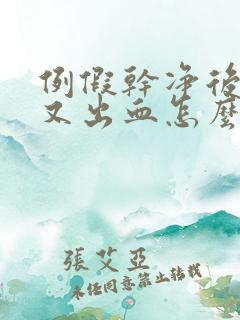 例假幹净後
又出血怎麽
張艾亞
未經同意禁止轉載